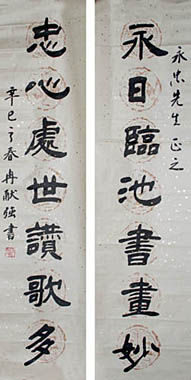 永忠先生正之
永日臨池書畫妙
忠心處世讚歌多
辛巳之春冉献强書